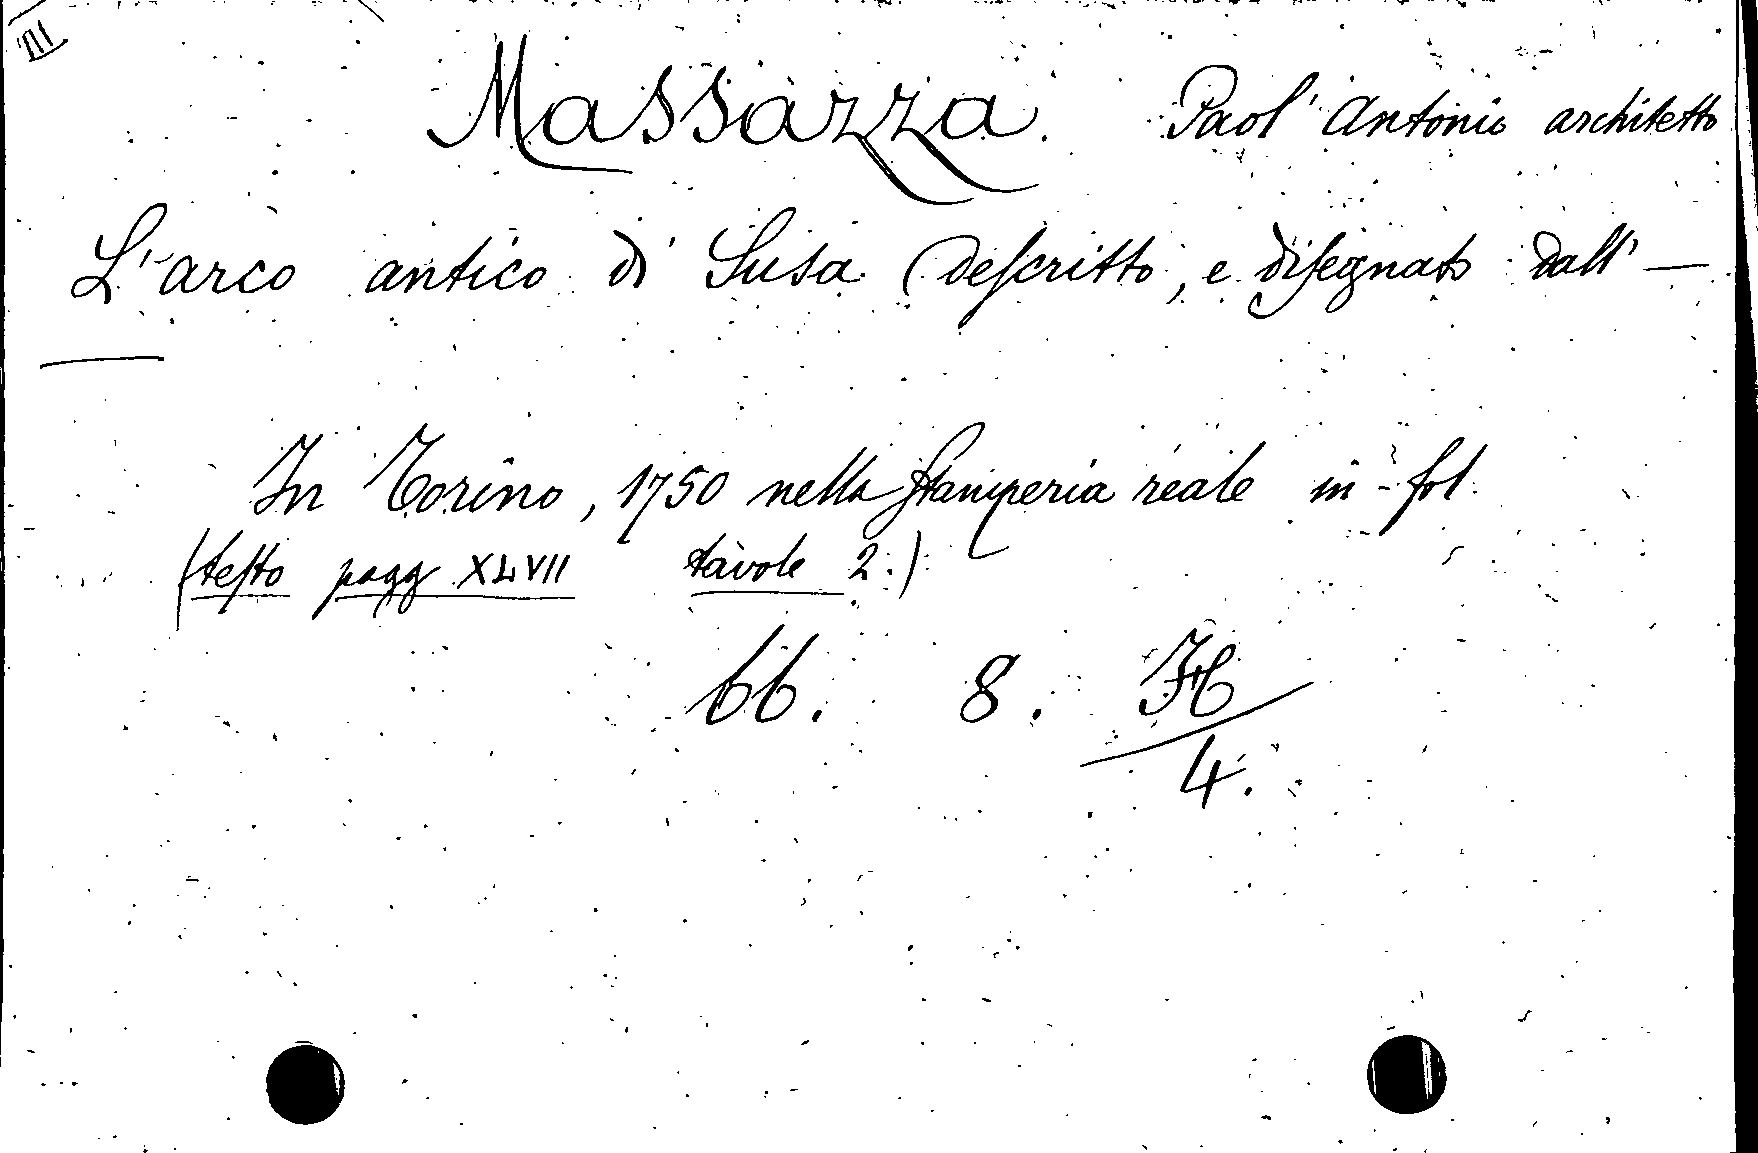 III
Massazza. Paol' Antonio architetto
L'arco antico di Susa (deſcritto, e diſegnato dall' —
—
In Torino, 1750 nella ſtamperia reale in-fol.
(teſto pagg XLVII tavole 2.)
bb. 8. H
4.